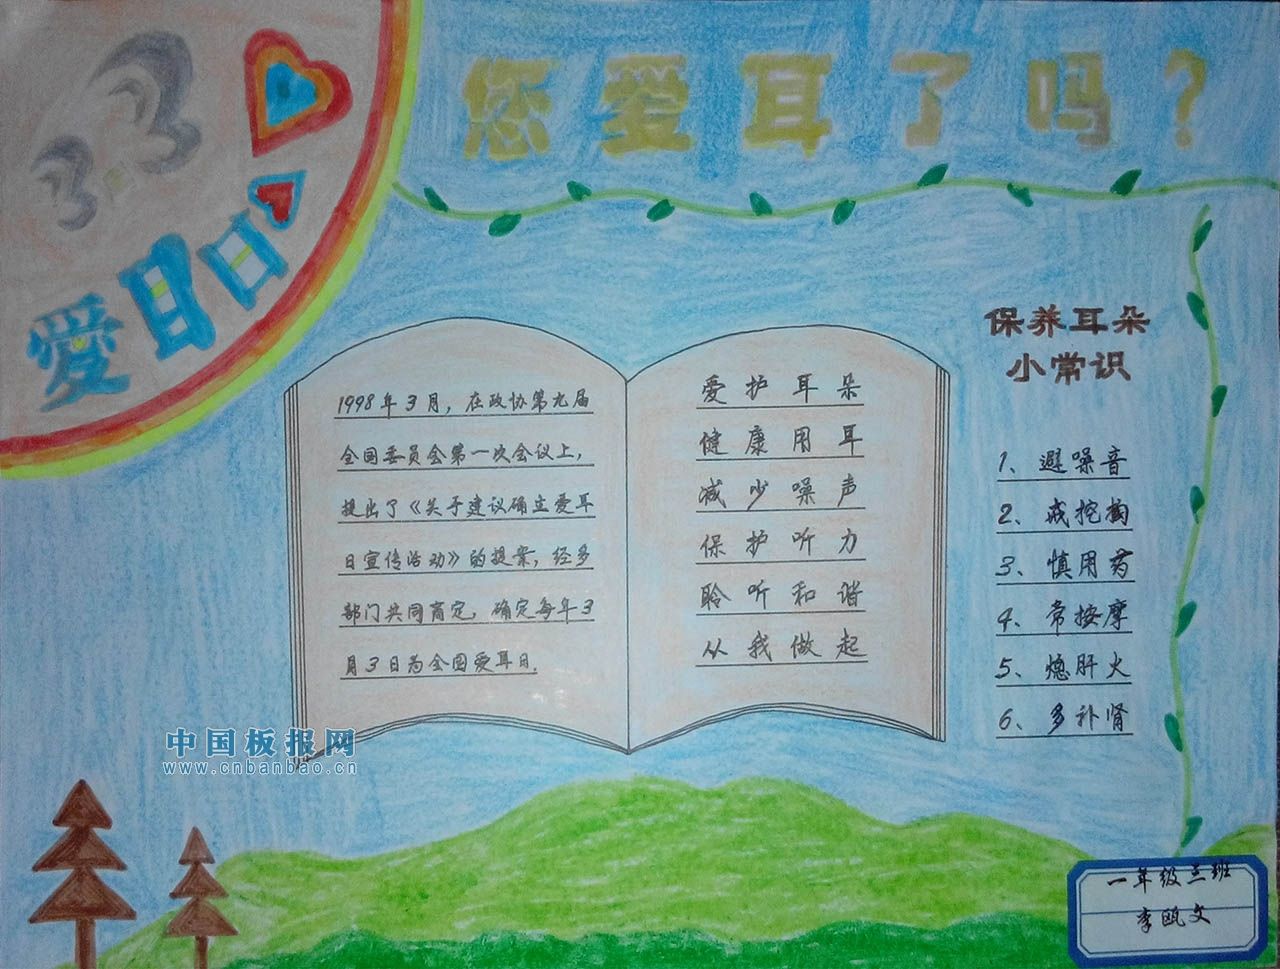 您爱耳了吗?
3.3
愛耳日
1998年3月，在政协第九届
全国委员会第一次会议上，
提出了《关于建议确立爱耳
日宣传活动》的提案，经多
部门共同商定，确定每年3
月3日为全国爱耳日.
爱护耳朵
健康用耳
减少噪声
保护听力
聆听和谐
从我做起
保养耳朵
小常识
1、避噪音
2、戒挖掏
3、慎用药
4、常按摩
5、熄肝火
6、多补肾
中国板报网
www.cnbanbao.cn
一年级三班
李瓯文